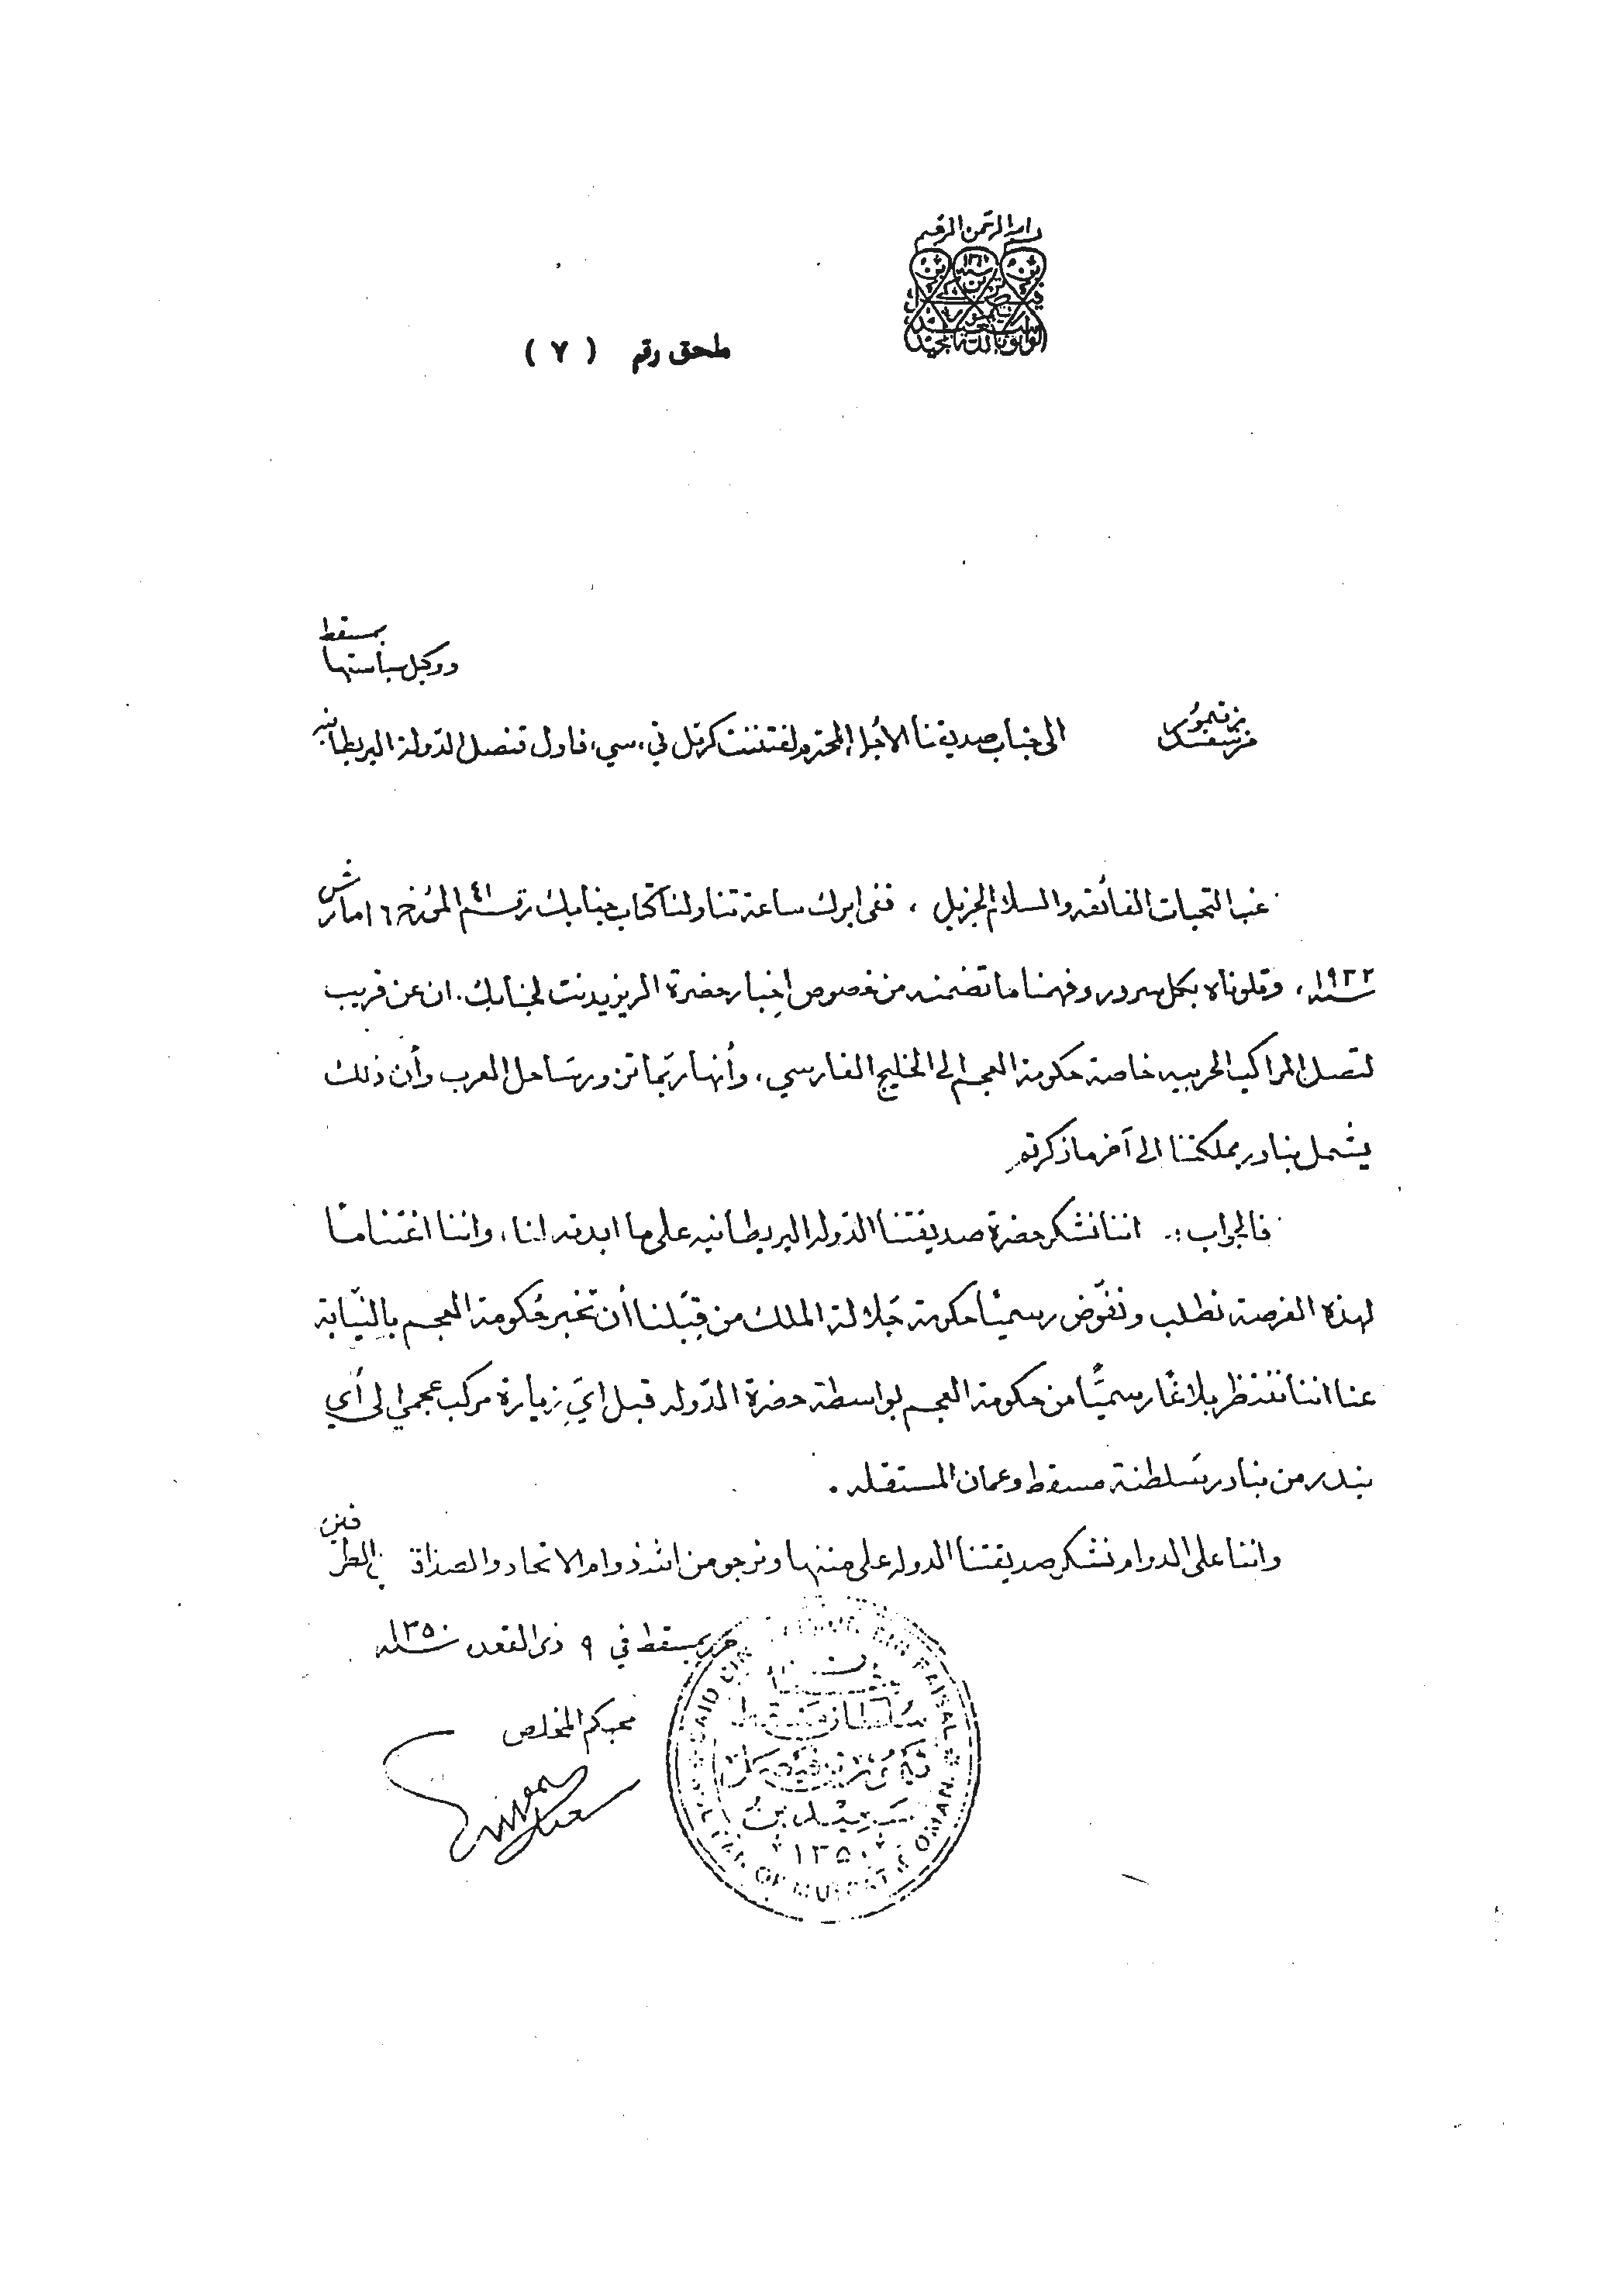 ملحق رقم ( ٧ )
بمسقط
ووكيل سياستها
من سعيد بن تيمور
الى جناب صديقنا الأجل المحترم لفتننت كرنل تي، سي، فاول قنصل الدولة البريطانيه
غب التحيات الفائقه والسلام الجزيل ، ففي ابرك ساعة تناولنا كتاب جنابك رقم ٤١ المؤرخ ١٦ مارش
سنة ١٩٣٢ ، وتلوناه بكل سرور وفهمنا ما تضمنه من خصوص إخبار حضرة الريزيدنت لجنابك. ان عن قريب
لتصل المراكب الحربيه خاصة حكومة العجم الى الخليج الفارسي، وأنها ربما تزور ساحل العرب وأن ذلك
يشمل بنادر مملكتنا الى آخر ما ذكرتم
فالجواب :. اننا نشكر حضرة صديقتنا الدوله البريطانيه على ما ابدته لنا، واننا اغتناما
لهذه الفرصة نطلب ونفوّض رسميًا حكومة جَلالة الملك من قِبَلنا أن تخبر حُكومة العجم بالنّيابة
عنا اننا ننتظر بلاغًا رسميًّا من حكومة العجم بواسطة حضرة الدّوله قبل ايّ زيارة مركب عجمي الى أي
بندر من بنادر سَلطنة مسقط وعمان المستقله .
واننا على الدوام نشكر صديقتنا الدوله على منتها ونرجو من الله دوام الاتحاد والصداقة في الطرفين
حرر بمسقط في ٩ ذى القعده سنة ١٣٥٠
محبكم المخلص
سلطان مسقط
تيمور بن فيصل
سعيد بن
١٣٥٠
SAID BIN TAIMUR BIN FAISAL
SULTAN OF MUSCAT & OMAN